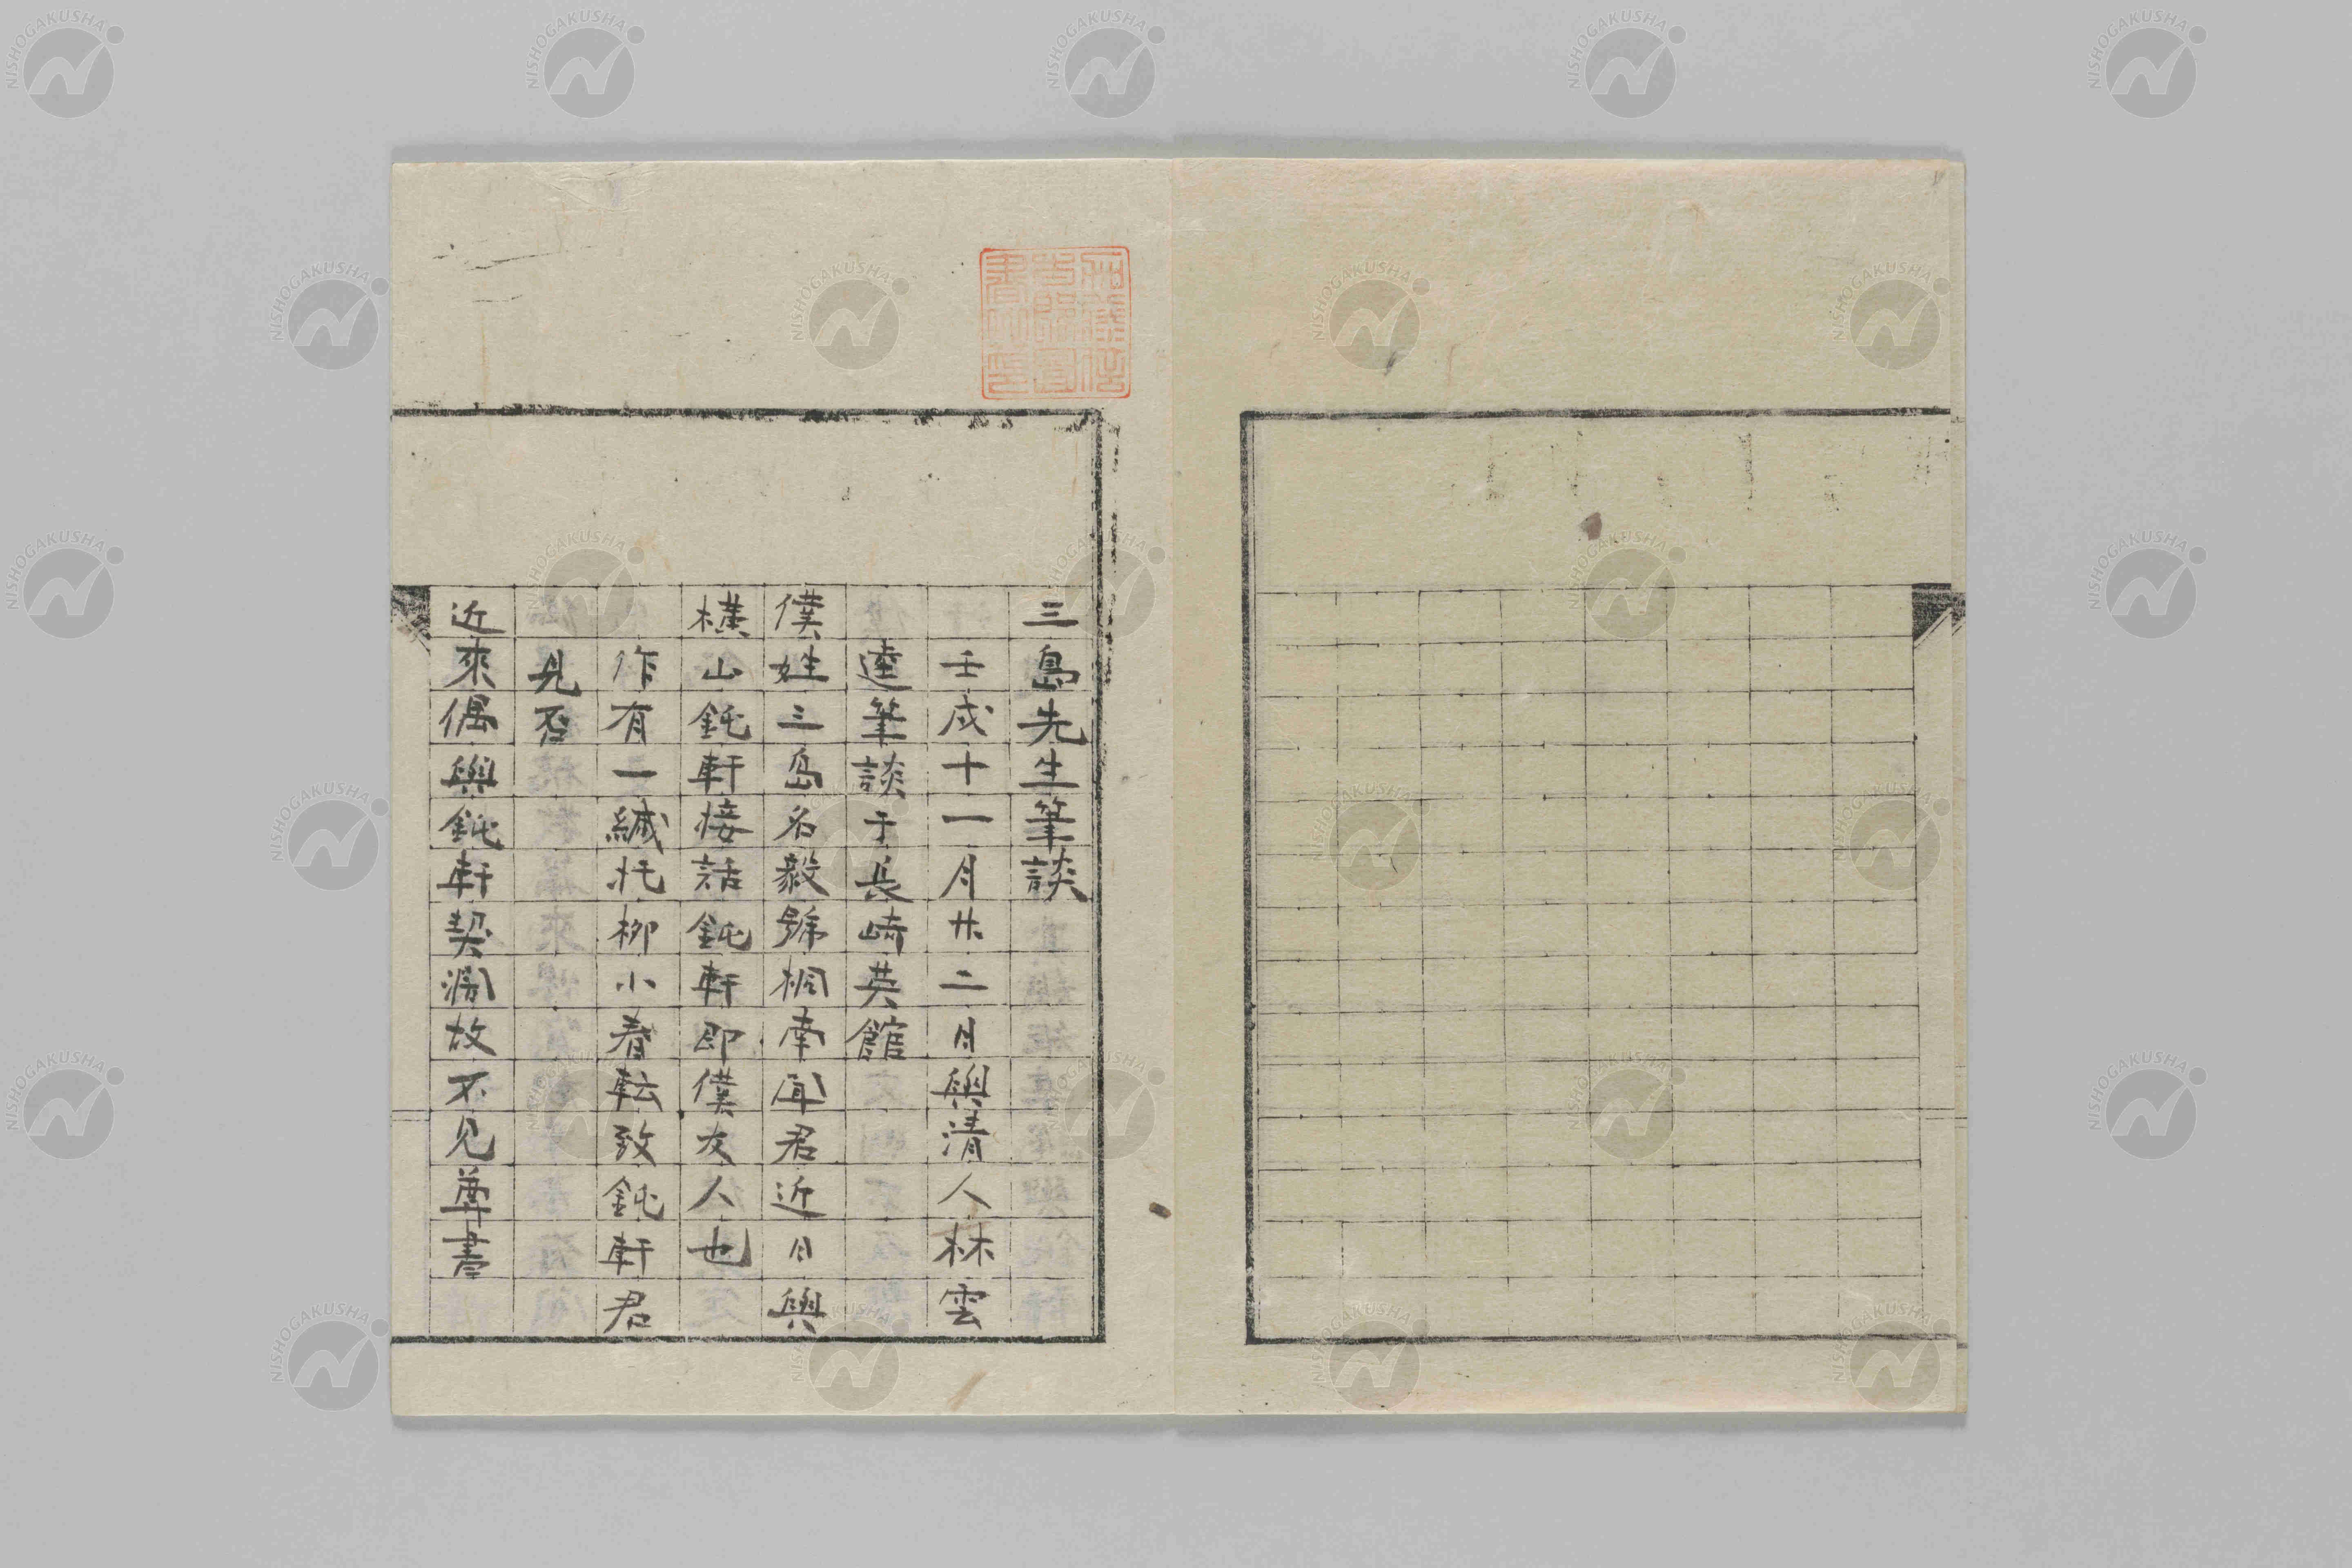 三島先生筆談
壬戌十一月廿二日與清人林雲
逵筆談于長崎英館
僕姓三島名毅號桐南聞君近日與
橫山鈍軒接話鈍軒即僕友人也
作有一緘托柳小春転致鈍軒君
見否
近來偶與鈍軒契濶故不见尊書
NISHOGAKUSHA